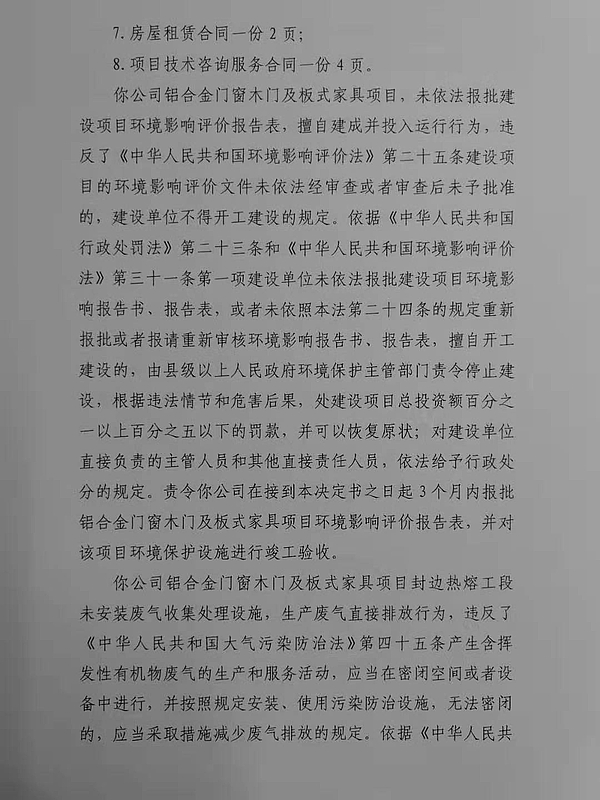 7. 房屋租赁合同一份 2 页；
8. 项目技术咨询服务合同一份 4 页。
你公司铝合金门窗木门及板式家具项目，未依法报批建
设项目环境影响评价报告表，擅自建成并投入运行行为，违
反了《中华人民共和国环境影响评价法》第二十五条建设项
目的环境影响评价文件未依法经审查或者审查后未予批准
的，建设单位不得开工建设的规定。依据《中华人民共和国
行政处罚法》第二十三条和《中华人民共和国环境影响评价
法》第三十一条第一项建设单位未依法报批建设项目环境影
响报告书、报告表，或者未依照本法第二十四条的规定重新
报批或者报请重新审核环境影响报告书、报告表，擅自开工
建设的，由县级以上人民政府环境保护主管部门责令停止建
设，根据违法情节和危害后果，处建设项目总投资额百分之
一以上百分之五以下的罚款，并可以恢复原状；对建设单位
直接负责的主管人员和其他直接责任人员，依法给予行政处
分的规定。责令你公司在接到本决定书之日起 3 个月内报批
铝合金门窗木门及板式家具项目环境影响评价报告表，并对
该项目环境保护设施进行竣工验收。
你公司铝合金门窗木门及板式家具项目封边热熔工段
未安装废气收集处理设施，生产废气直接排放行为，违反了
《中华人民共和国大气污染防治法》第四十五条产生含挥
发性有机物废气的生产和服务活动，应当在密闭空间或者设
备中进行，并按照规定安装、使用污染防治设施，无法密闭
的，应当采取措施减少废气排放的规定。依据《中华人民共